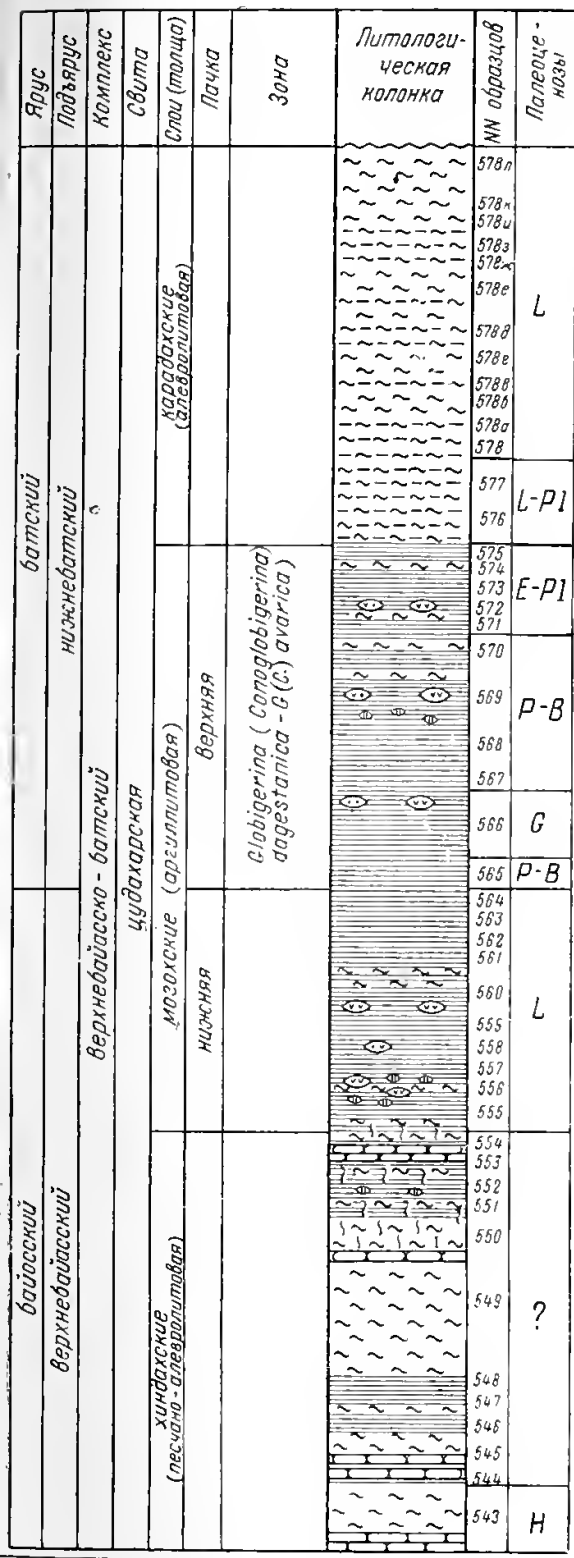 Ярус
Подъярус
Комплекс
Свита
Слои (толща)
Пачка
Зона
Литологи-
ческая
колонка
NN образцов
Палеоце-
нозы
батский
байосский
нижнебатский
верхнебайосский
верхнебайосско-батский
цудахарская
карадахские
(алевролитовая)
мозохские (аргиллитовая)
хиндахские
(песчано-алевролитовая)
верхняя
нижняя
Globigerina (Conoglobigerina)
dagestanica - G(C.) avarica)
578л
578к
578и
578з
578ж
578е
578д
578г
578в
578б
578а
578
577
576
575
574
573
572
571
570
569
568
567
566
565
564
563
562
561
560
559
558
557
556
555
554
553
552
551
550
549
548
547
546
545
544
543
L
L-Pl
E-Pl
P-B
G
P-B
L
?
H